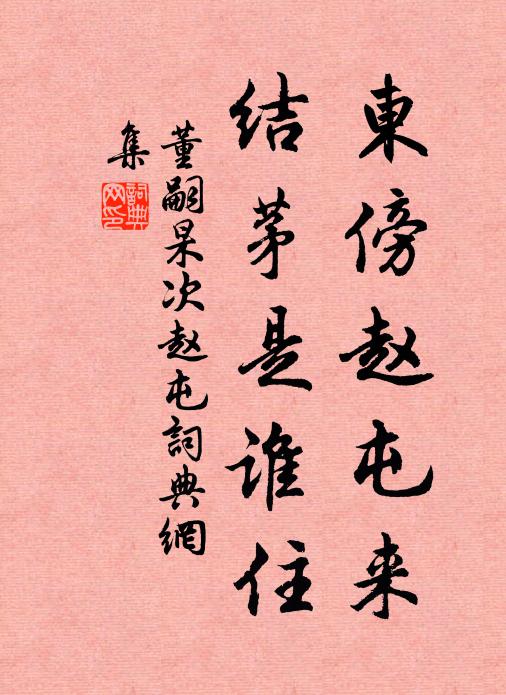 東傍赵屯来
结茅是谁住
董嗣杲次赵屯詞典網
集
詞典
网印